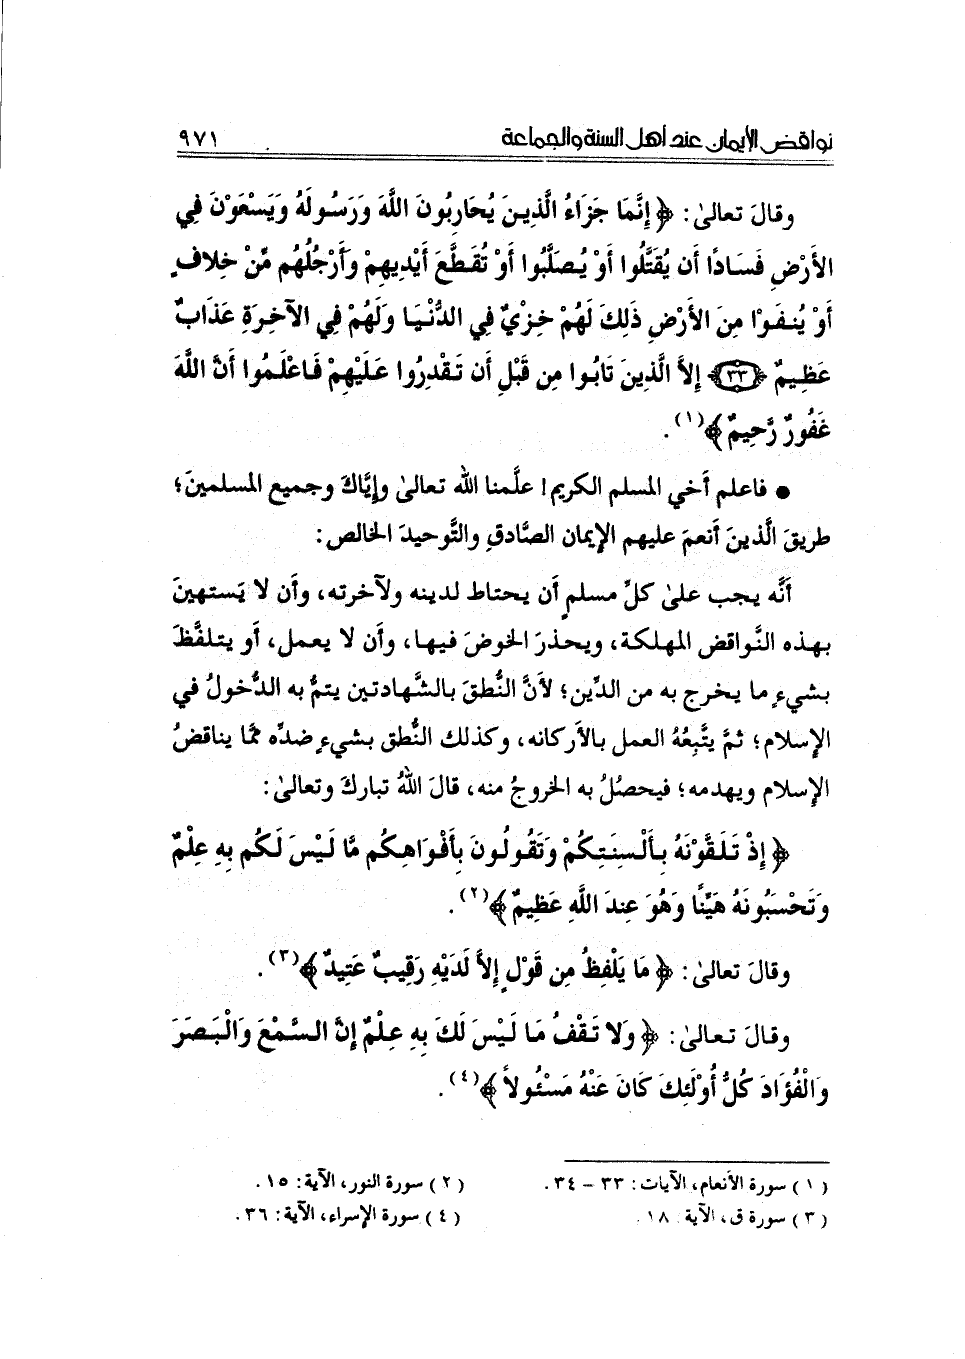 نواقض الإيمان عند أهل السنة والجماعة ٩٧١
وقالَ تعالىٰ: ﴿إِنَّمَا جَزَاءُ الَّذِينَ يُحَارِبُونَ اللَّهَ وَرَسُولَهُ وَيَسْعَوْنَ فِي
الأَرْضِ فَسَادًا أَن يُقَتَّلُوا أَوْ يُصَلَّبُوا أَوْ تُقَطَّعَ أَيْدِيهِمْ وَأَرْجُلُهُم مِّنْ خِلافٍ
أَوْ يُنفَوْا مِنَ الأَرْضِ ذَلِكَ لَهُمْ خِزْيٌ فِي الدُّنْيَا وَلَهُمْ فِي الآخِرَةِ عَذَابٌ
عَظِيمٌ ﴿٣٣﴾ إِلاَّ الَّذِينَ تَابُوا مِن قَبْلِ أَن تَقْدِرُوا عَلَيْهِمْ فَاعْلَمُوا أَنَّ اللَّهَ
غَفُورٌ رَّحِيمٌ﴾(١).
● فاعلم أخي المسلم الكريم! علَّمنا الله تعالىٰ وإيَّاكَ وجميع المسلمين؛
طريقَ الَّذينَ أنعمَ عليهم الإيمان الصَّادقِ والتَّوحيدَ الخالص:
أنَّه يجب علىٰ كلِّ مسلمٍ أن يحتاط لدينه ولآخرته، وأن لا يَستهينَ
بهذه النَّواقض المهلكة، ويحذرَ الخوضَ فيها، وأن لا يعمل، أو يتلفَّظَ
بشيءٍ ما يخرج به من الدِّين؛ لأنَّ النُّطقَ بالشَّهادتين يتمُّ به الدُّخولُ في
الإسلام؛ ثمَّ يتَّبِعُهُ العمل بالأركانه، وكذلك النُّطق بشيءٍ ضدِّه ممَّا يناقضُ
الإسلام ويهدمه؛ فيحصُلُ به الخروجُ منه، قالَ اللهُ تباركَ وتعالىٰ:
﴿إِذْ تَلَقَّوْنَهُ بِأَلْسِنَتِكُمْ وَتَقُولُونَ بِأَفْوَاهِكُم مَّا لَيْسَ لَكُم بِهِ عِلْمٌ
وَتَحْسَبُونَهُ هَيِّنًا وَهُوَ عِندَ اللَّهِ عَظِيمٌ﴾(٢).
وقالَ تعالىٰ: ﴿مَا يَلْفِظُ مِن قَوْلٍ إِلاَّ لَدَيْهِ رَقِيبٌ عَتِيدٌ﴾(٣).
وقالَ تعالىٰ: ﴿وَلا تَقْفُ مَا لَيْسَ لَكَ بِهِ عِلْمٌ إِنَّ السَّمْعَ وَالْبَصَرَ
وَالْفُؤَادَ كُلُّ أُوْلَئِكَ كَانَ عَنْهُ مَسْئُولاً﴾(٤).
(١) سورة الأنعام، الآيات: ٣٣ - ٣٤. (٢) سورة النور، الآية: ١٥.
(٣) سورة ق، الآية: ١٨. (٤) سورة الإسراء، الآية: ٣٦.